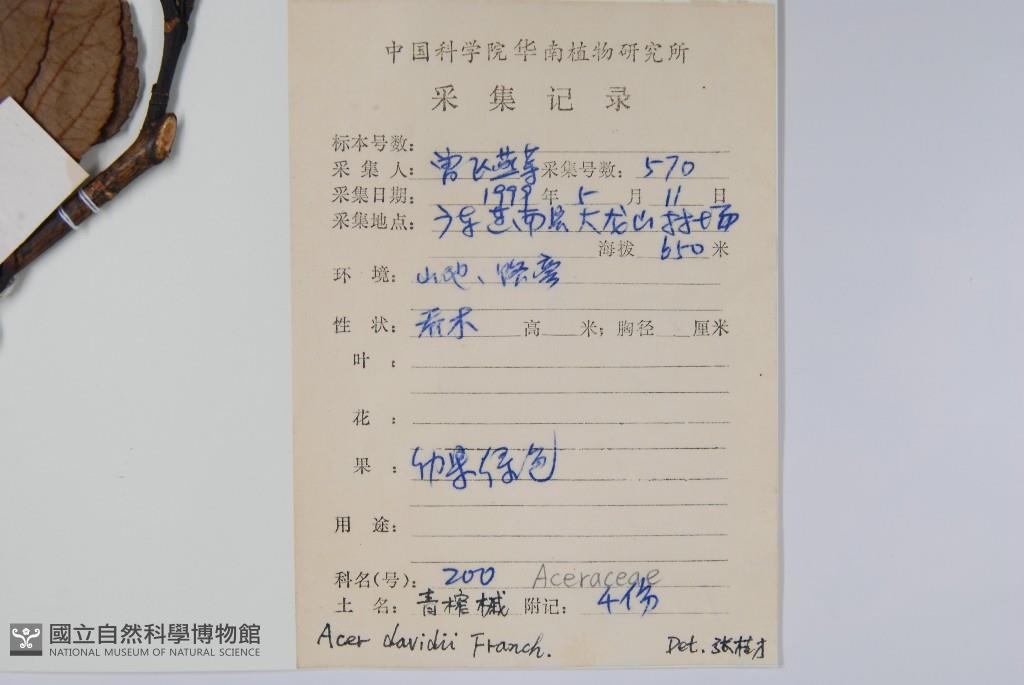 中国科学院华南植物研究所
采集记录
标本号数：
采集人：曾飞燕等 采集号数：570
采集日期：1999年5月11日
采集地点：广东连南县大龙山林场
海拔 650 米
环境：山地、路旁
性状：乔木 高 米；胸径 厘米
叶：
花：
果：幼果绿色
用途：
科名(号)：200 Aceraceae
土名：青榨槭 附记：4份
Acer davidii Franch. Det. 张桂才
國立自然科學博物館
NATIONAL MUSEUM OF NATURAL SCIENCE